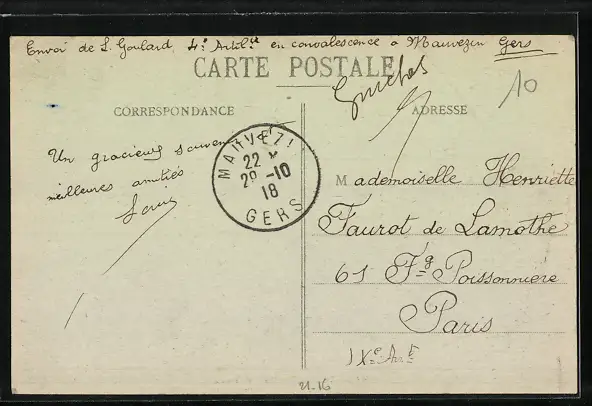 Envoi de L. Goulard, 4e Artill.ie en convalescence à Mauvezin Gers
CARTE POSTALE
10
CORRESPONDANCE
ADRESSE
Un gracieux souvenir
meilleures amitiés
Louis
MAUVEZIN
22
29-10
18
GERS
Mademoiselle Henriette
Faurot de Lamothe
61 Fg Poissonnière
Paris
IXe Arrt
21.16